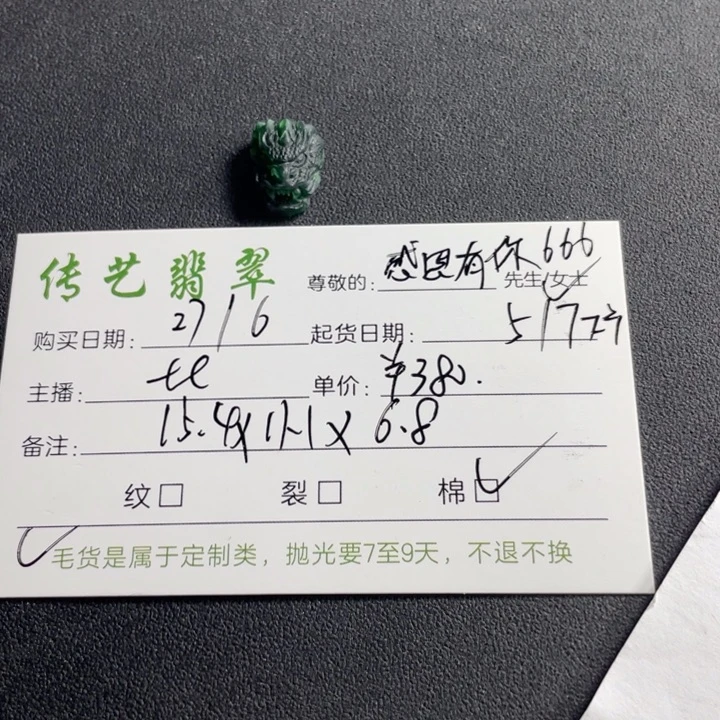 传艺翡翠 尊敬的: 感恩有你666 先生/女士
购买日期: 27/6 起货日期: 5/7
主播: 单价: ¥380.
备注: 15.4x11.1x6.8
纹 裂 棉
毛货是属于定制类，抛光要7至9天，不退不换